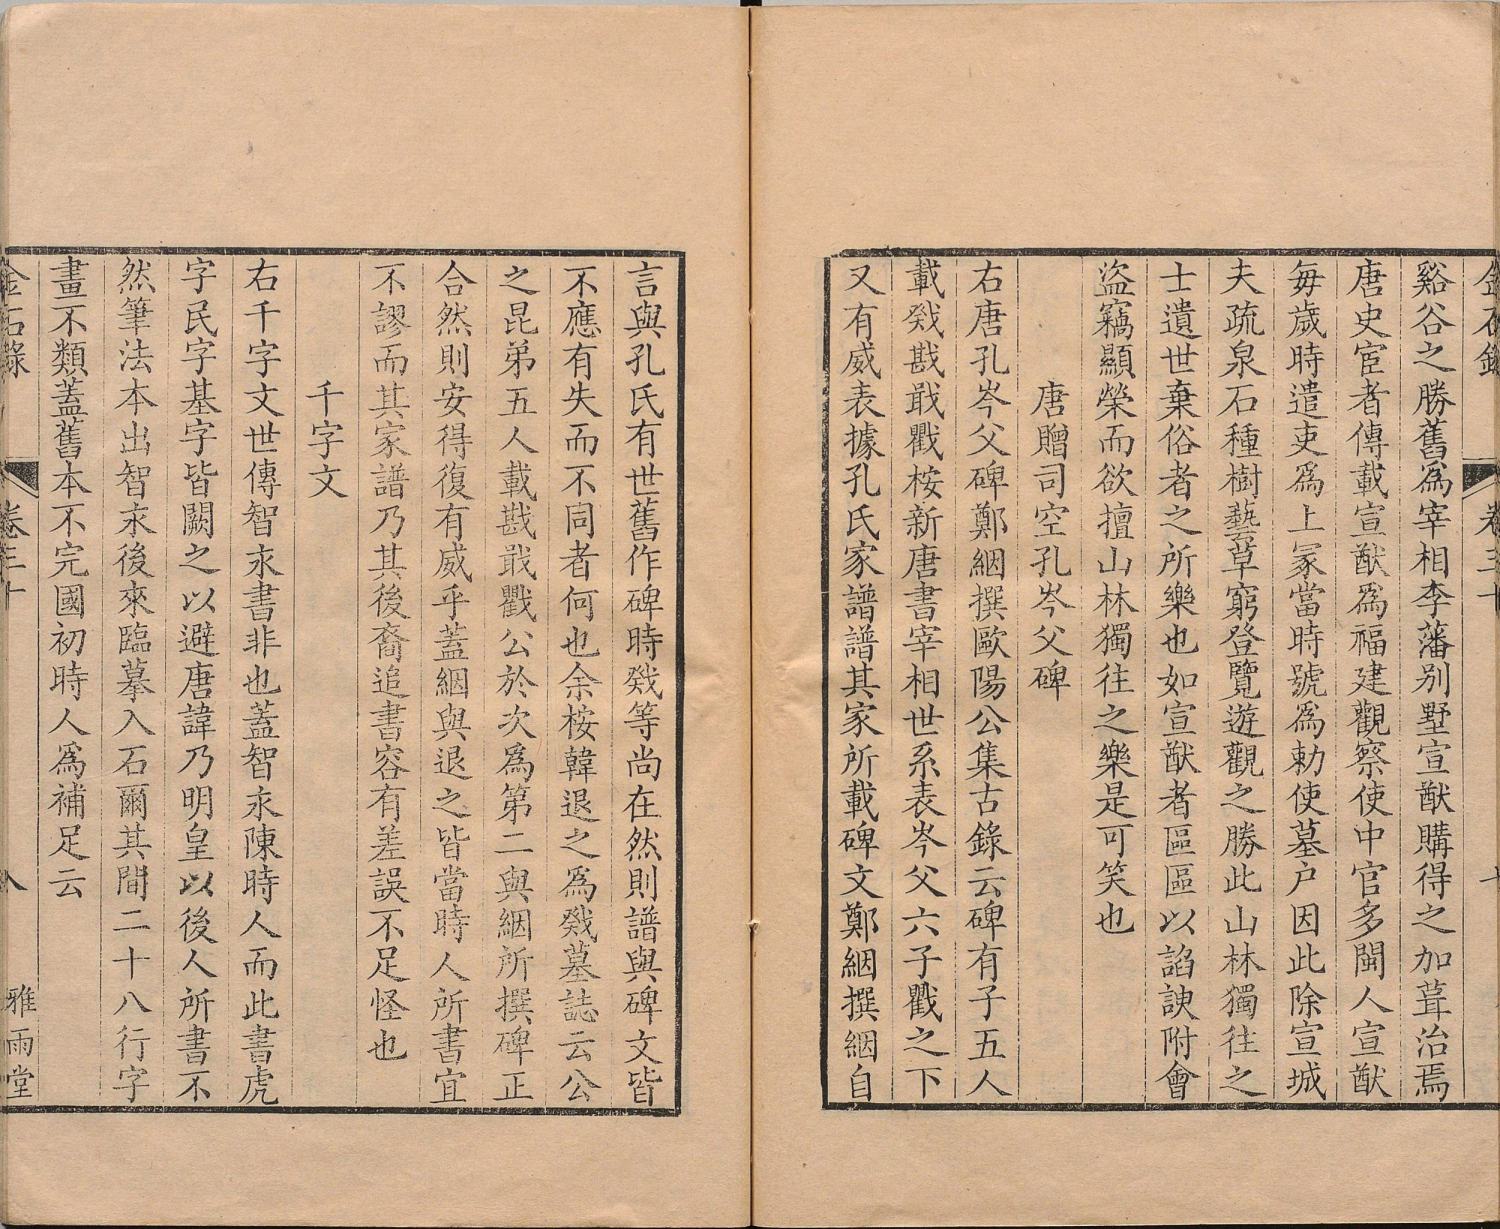 金石錄 卷三十
谿谷之勝舊爲宰相李藩別墅宣猷購得之加葺治焉
唐史宦者傳載宣猷爲福建觀察使中官多閩人宣猷
每歲時遣吏爲上冢當時號爲勅使墓户因此除宣城
夫疏泉石種樹藝草窮登覽遊觀之勝此山林獨往之
士遺世棄俗者之所樂也如宣猷者區區以諂諛附會
盜竊顯榮而欲擅山林獨往之樂是可笑也
唐贈司空孔岑父碑
右唐孔岑父碑鄭絪撰歐陽公集古錄云碑有子五人
載戣戡戢戵桉新唐書宰相世系表岑父六子戵之下
又有威表據孔氏家譜譜其家所載碑文鄭絪撰絪自
言與孔氏有世舊作碑時戣等尚在然則譜與碑文皆
不應有失而不同者何也余桉韓退之爲戣墓誌云公
之昆弟五人載戡戢戵公於次爲第二與絪所撰碑正
合然則安得復有威乎蓋絪與退之皆當時人所書宜
不謬而其家譜乃其後裔追書容有差誤不足怪也
千字文
右千字文世傳智永書非也蓋智永陳時人而此書虎
字民字基字皆闕之以避唐諱乃明皇以後人所書不
然筆法本出智永後來臨摹入石爾其間二十八行字
畫不類蓋舊本不完國初時人爲補足云
金石錄 卷三十 八 雅雨堂